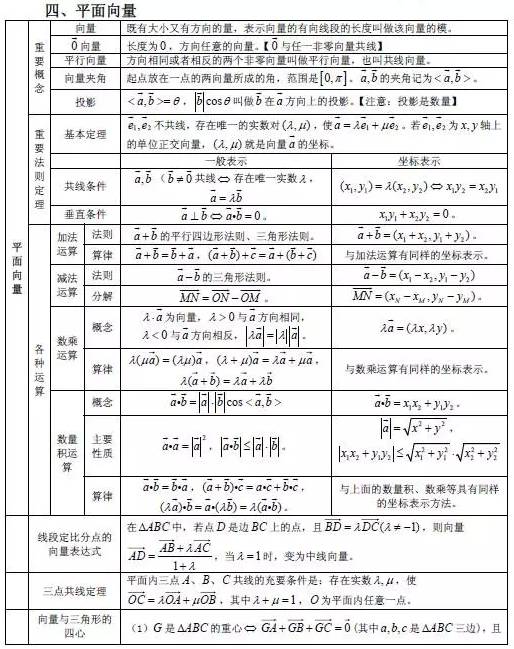 四、平面向量
平面向量
重要概念
向量 既有大小又有方向的量，表示向量的有向线段的长度叫做该向量的模。
0⃗向量 长度为0，方向任意的向量。【0⃗与任一非零向量共线】
平行向量 方向相同或者相反的两个非零向量叫做平行向量，也叫共线向量。
向量夹角 起点放在一点的两向量所成的角，范围是[0,π]。a⃗,b⃗的夹角记为<a⃗,b⃗>。
投影 <a⃗,b⃗>=θ，|b⃗|cosθ叫做b⃗在a⃗方向上的投影。【注意：投影是数量】
重要法则定理
基本定理 e⃗₁,e⃗₂不共线，存在唯一的实数对(λ,μ)，使a⃗=λe⃗₁+μe⃗₂。若e⃗₁,e⃗₂为x,y轴上
的单位正交向量，(λ,μ)就是向量a⃗的坐标。
一般表示 坐标表示
共线条件 a⃗,b⃗（b⃗≠0⃗共线⇔存在唯一实数λ，
a⃗=λb⃗
(x₁,y₁)=λ(x₂,y₂)⇔x₁y₂=x₂y₁
垂直条件 a⃗⊥b⃗⇔a⃗•b⃗=0。 x₁y₁+x₂y₂=0。
各种运算
加法运算 法则 a⃗+b⃗的平行四边形法则、三角形法则。 a⃗+b⃗=(x₁+x₂,y₁+y₂)。
算律 a⃗+b⃗=b⃗+a⃗，(a⃗+b⃗)+c⃗=a⃗+(b⃗+c⃗) 与加法运算有同样的坐标表示。
减法运算 法则 a⃗-b⃗的三角形法则。 a⃗-b⃗=(x₁-x₂,y₁-y₂)
分解 MN⃗=ON⃗-OM⃗。 MN⃗=(x_N-x_M,y_N-y_M)。
数乘运算 概念 λ·a⃗为向量，λ>0与a⃗方向相同，
λ<0与a⃗方向相反，|λa⃗|=|λ||a⃗|。
λa⃗=(λx,λy)。
算律 λ(μa⃗)=(λμ)a⃗，(λ+μ)a⃗=λa⃗+μa⃗，
λ(a⃗+b⃗)=λa⃗+λb⃗
与数乘运算有同样的坐标表示。
数量积运算 概念 a⃗•b⃗=|a⃗|·|b⃗|cos<a⃗,b⃗> a⃗•b⃗=x₁x₂+y₁y₂。
主要性质 a⃗•a⃗=|a⃗|²，|a⃗•b⃗|≤|a⃗|·|b⃗|。
|a⃗|=√(x²+y²)，
|x₁x₂+y₁y₂|≤√(x₁²+y₁²)·√(x₂²+y₂²)
算律 a⃗•b⃗=b⃗•a⃗，(a⃗+b⃗)•c⃗=a⃗•c⃗+b⃗•c⃗，
(λa⃗)•b⃗=a⃗•(λb⃗)=λ(a⃗•b⃗)。
与上面的数量积、数乘等具有同样
的坐标表示方法。
线段定比分点的
向量表达式
在ΔABC中，若点D是边BC上的点，且BD⃗=λDC⃗(λ≠-1)，则向量
AD⃗=(AB⃗+λAC⃗)/(1+λ)，当λ=1时，变为中线向量。
三点共线定理
平面内三点A、B、C共线的充要条件是：存在实数λ,μ，使
OC⃗=λOA⃗+μOB⃗，其中λ+μ=1，O为平面内任意一点。
向量与三角形的
四心
（1）G是ΔABC的重心⇔GA⃗+GB⃗+GC⃗=0⃗(其中a,b,c是ΔABC三边)，且